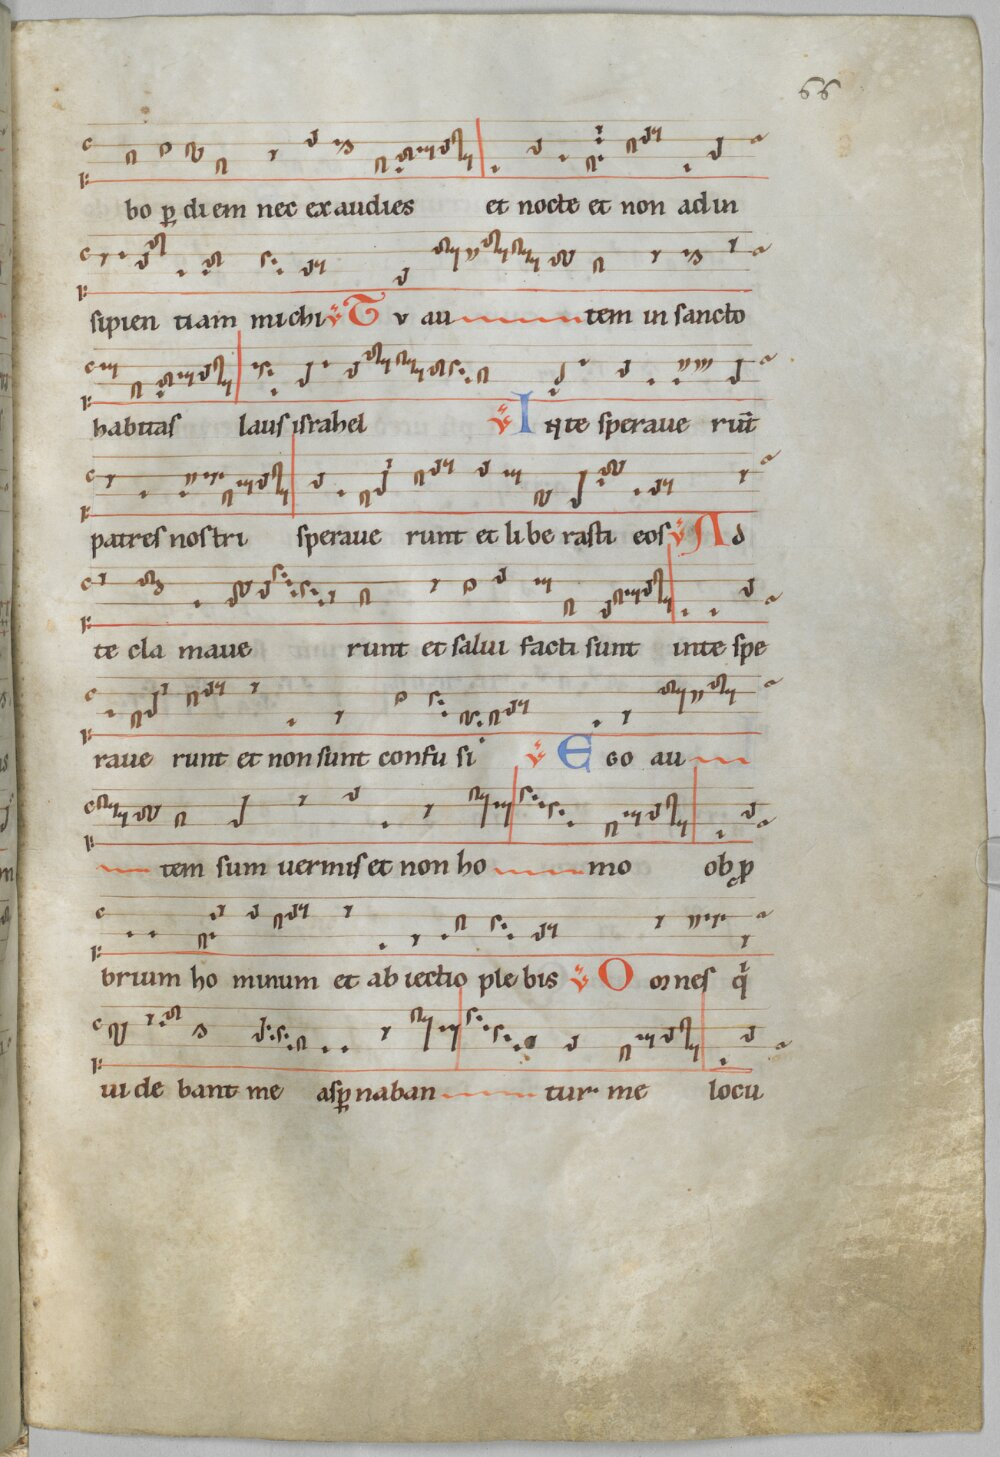 66
bo ꝑ diem nec exaudies et nocte et non ad in
sipien tiam michi ℣ Tu au tem in sancto
habitas laus israhel ℣ In te speraue rūt
patres nostri speraue runt et liberasti eos ℣ Ad
te cla maue runt et salui facti sunt in te spe
raue runt et non sunt confusi ℣ Ego au
tem sum uermis et non ho mo obꝓ
brium ho minum et abiectio plebis ℣ Omnes q
uidebant me aspꝑnaban tur me locu